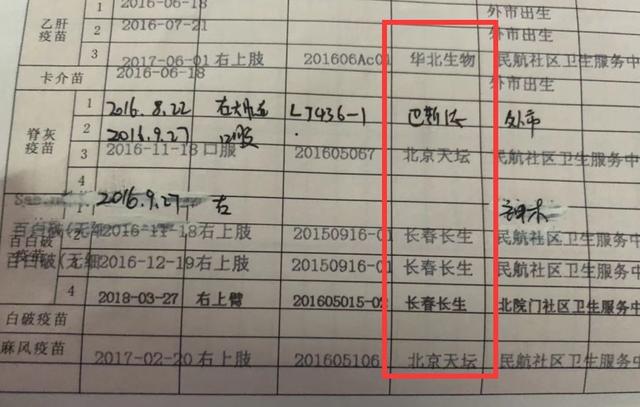 2016-06-18 外市出生
乙肝疫苗 2016-07-21 外市出生
3 2017-06-01 右上肢 201606Ac01 华北生物 民航社区卫生服务中
卡介苗 2016-06-18 外市出生
脊灰疫苗 1 2016.8.22 LJ436-1 巴斯德 外市
2 2016.9.27 口服
3 2016-11-18 口服 201605067 北京天坛 民航社区卫生服务中
4
1 2016.9.27 左
百白破(无细 2 2016-11-18 右上肢 20150916-01 长春长生 民航社区卫生服务中
百白破(无细 2016-12-19 右上肢 20150916-01 长春长生 民航社区卫生服务中
4 2018-03-27 右上臂 201605015-02 长春长生 北院门社区卫生服务中
白破疫苗
麻风疫苗 2017-02-20 右上肢 201605106 北京天坛 民航社区卫生服务中